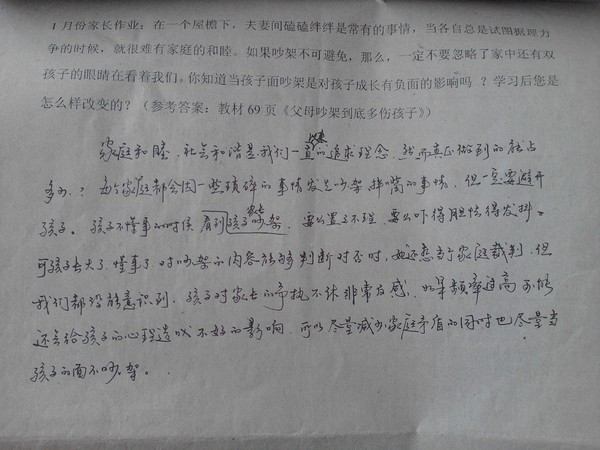 1月份家长作业：在一个屋檐下，夫妻间磕磕绊绊是常有的事情，当各自总是试图据理力
争的时候，就很难有家庭的和睦。如果吵架不可避免，那么，一定不要忽略了家中还有双
孩子的眼睛在看着我们。你知道当孩子面吵架是对孩子成长有负面的影响吗？学习后您是
怎么样改变的？（参考答案：教材69页《父母吵架到底多伤孩子》）
家庭和睦、社会和谐是我们一直以来的追求理念，然而真正做到的能占
多少？每个家庭都会因一些琐碎的事情发生吵架、拌嘴的事情，但一定要避开
孩子。孩子不懂事的时候看到家长吵架，要么置之不理，要么吓得胆怯得发抖。
可孩子长大了，懂事了，对吵架的内容能够判断对否时，她还想当个家庭裁判，但
我们都没能意识到，孩子对家长的争执不休非常反感，如果频率过高可能
还会给孩子的心理造成不好的影响，所以尽量减少家庭矛盾的同时也尽量当
孩子的面不吵架。